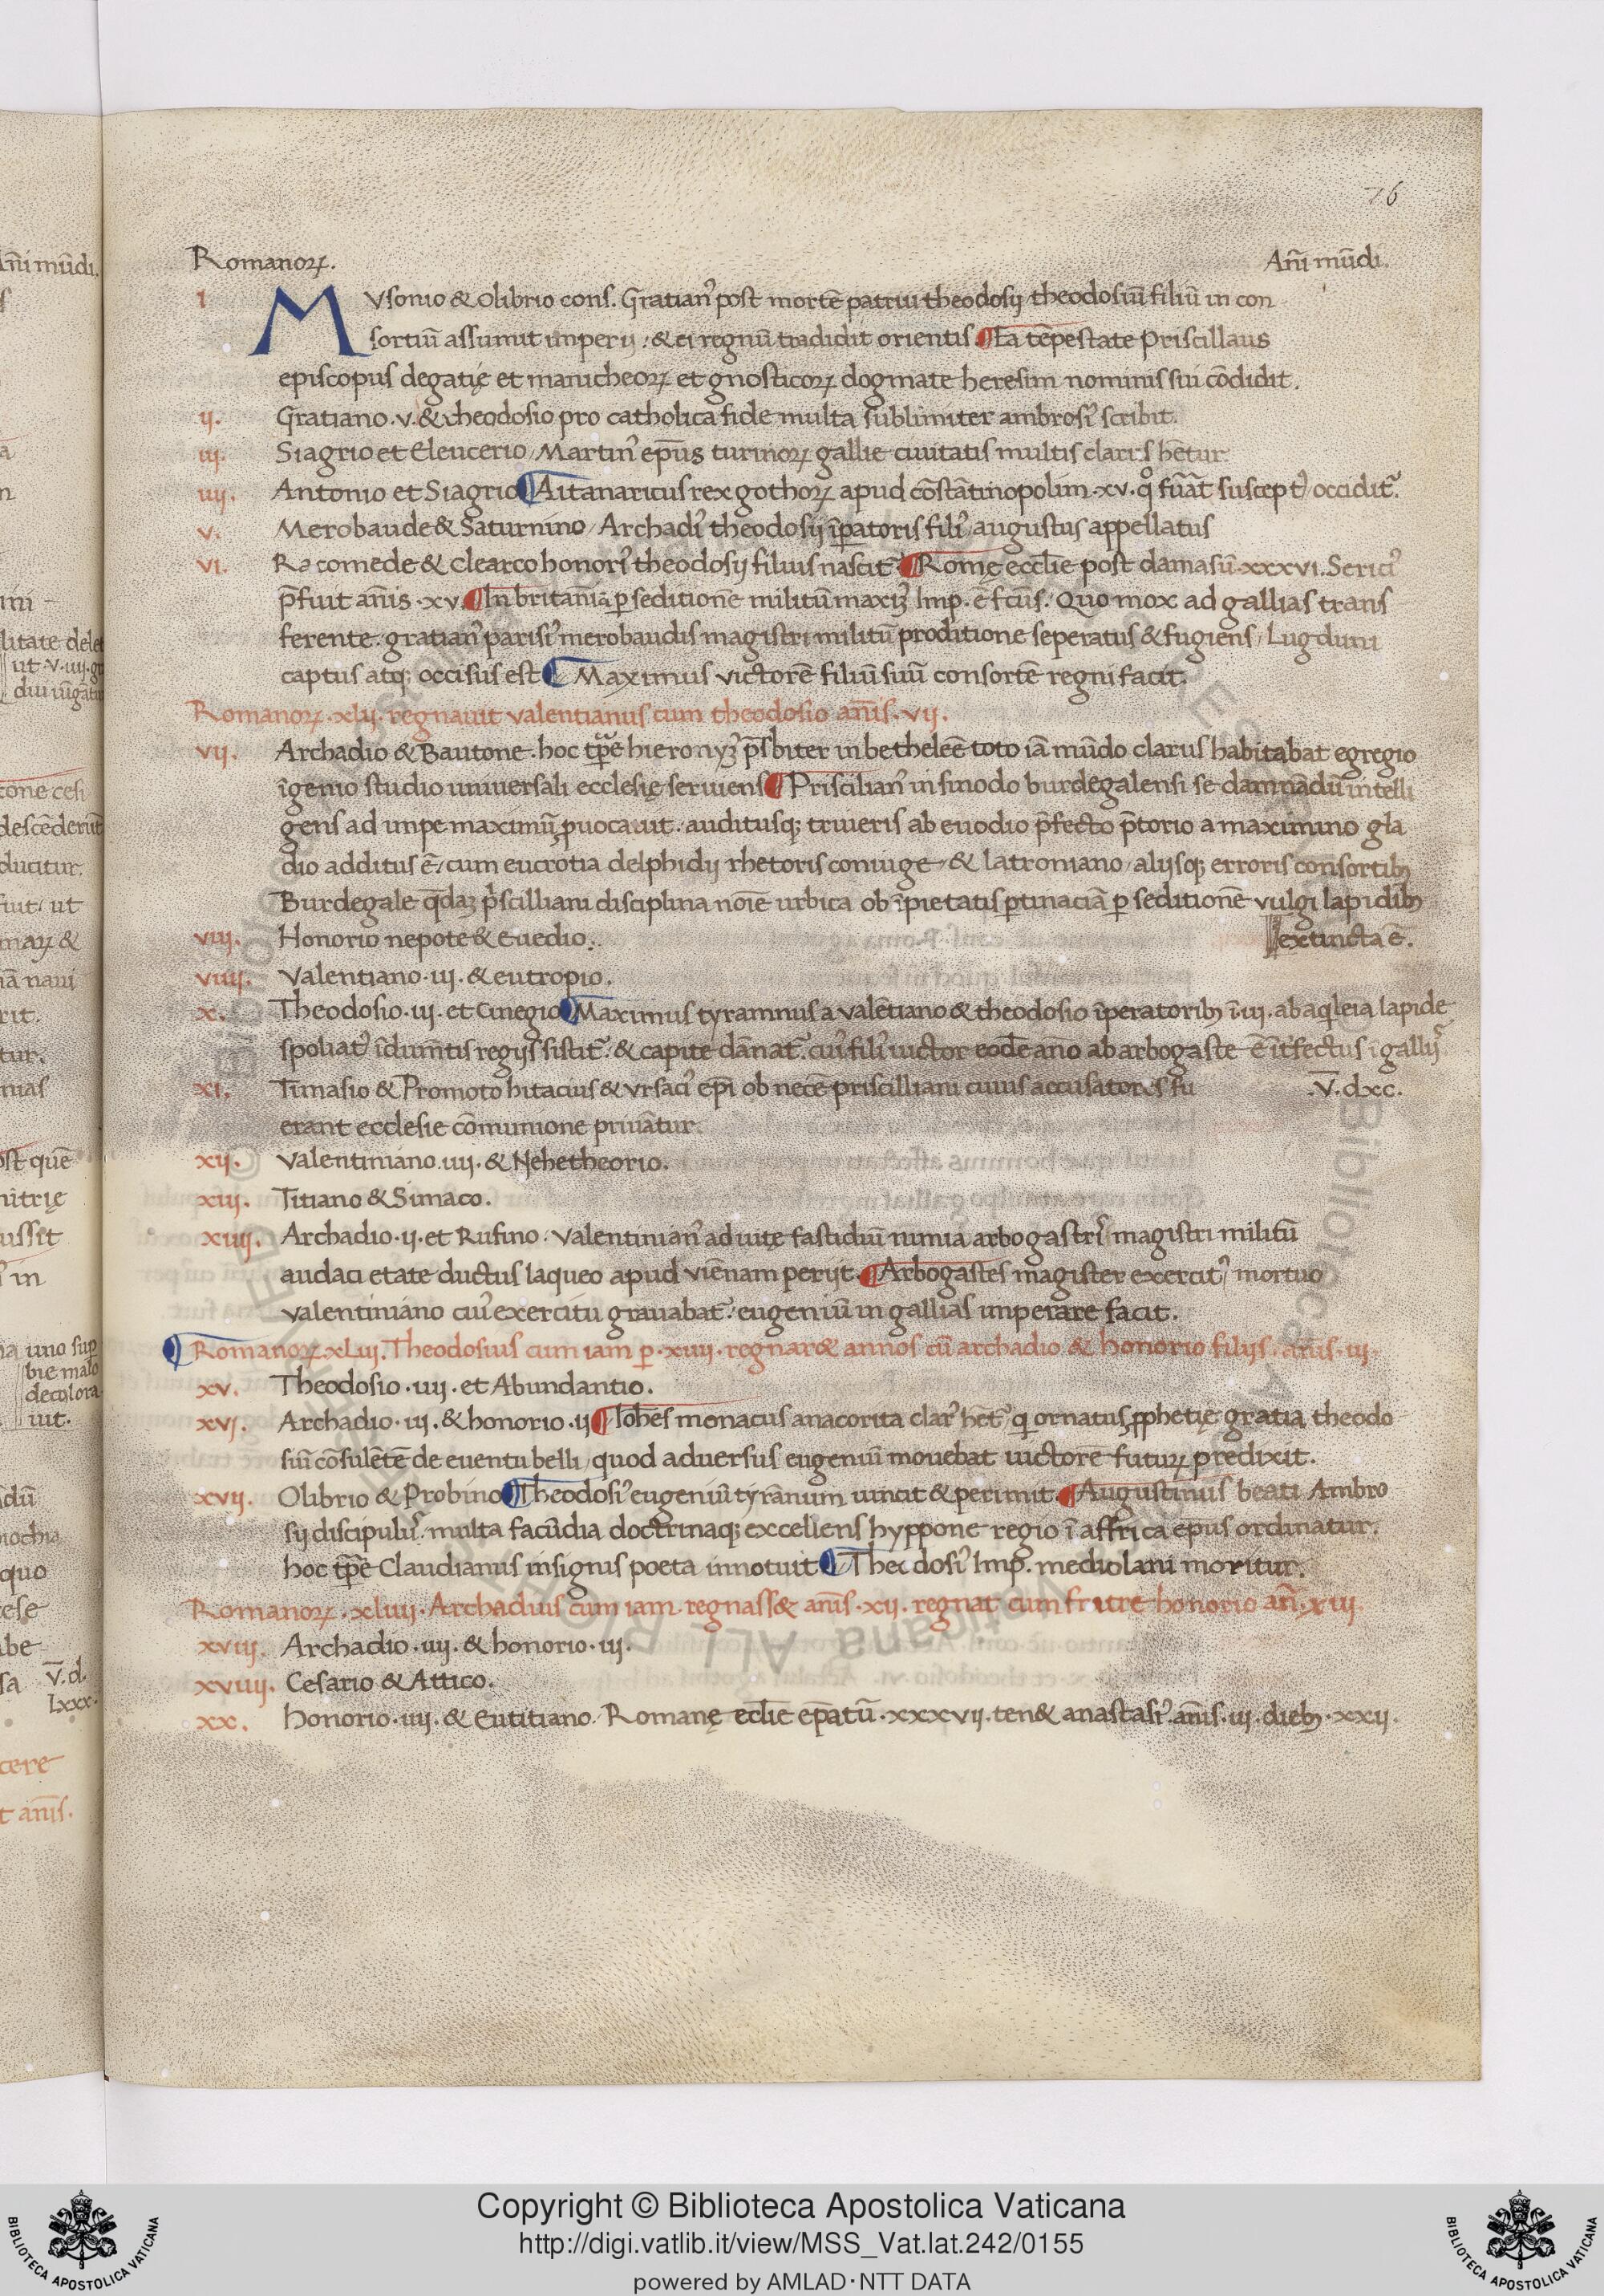 76
Romanoꝝ. An̄i mūdi.
I MVsonio & Olibrio cons. Gratian᾽ post mortē patrui theodosij theodosiū filiū in con
sortiū assumit imperij: & ei regnū tradidit orientis. ¶Ea tēpestate Priscillaus
episcopus degatię et manicheoꝝ et gnosticoꝝ dogmate heresim nominis sui cōdidit.
ij. Gratiano .v. & theodosio pro catholica fide multa sublimiter ambrosi᾽ scribit.
iij. Siagrio et Eleucerio / Martin᾽ ep̄us turinoꝝ gallie ciuitatis multis clarus hētur
iiij. Antonio et Siagrio ¶Aitanaricus rex gothoꝝ apud cōstātinopolim .xv.
v. Merobaude & Saturnino / Archadi᾽ theodosij īpatoris fili᾽ augustus appellatus
vi. Racomede & clearco honori᾽ theodosij filius nascit᾽. ¶Romę eccl̄ie post damasū .xxxvi. Serici᾽
p̄fuit an̄is .xv. ¶In britania ꝑ seditionē militū maxiꝫ Imp. ē fc̄us. Quo mox ad gallias trans
ferente. gratian᾽ parisi᾽ merobaudis magistri militū proditione seperatus & fugiens / Lugduni
captus atqꝫ occisus est ¶Maximus victorē filiū suū consortē regni facit.
Romanoꝝ .xlij. regnauit valentianus cum theodosio an̄is .vij.
vij. Archadio & Bautone. hoc tp̄e hieronyꝫ p̄sbiter in betheleē toto iā mūdo clarus habitabat egregio
īgenio studio uniuersali ecclesię seruiens ¶Priscilian᾽ in sinodo burdegalensi se damnādū intelli
gens ad impe maximū ꝓuocauit. auditusqꝫ truieris ab euodio p̄fecto p̄torio a maximino gla
dio additus ē / cum eucrotia delphidij rhetoris coniuge / & latroniano / alijsqꝫ erroris consortibꝫ
Burdegale q̄daꝫ p̓scilliani disciplina noīe urbica ob īpietatis ꝑtinaciā ꝑ seditionē vulgi lapidibꝫ
viij. Honorio nepote & Euedio. extincta ē.
viiij. Valentiano .iij. & eutropio.
x. Theodosio .iij. et Cinegio ¶Maximus tyramnus a valētiano & theodosio īperatoribꝫ ī .iij. ab aq̓leia lapide
spoliat᾽ īdumētis regijs sistit᾽. & capite dānat᾽. cui᾽ fili᾽ uictor eodē an̄o ab arbogaste ē īt̄fectus ī gallij᾽
xi. Timasio & Promoto hitacius & vrsaci᾽ ep̄i ob necē priscilliani cuius accusatores fu .V̄. dxc.
erant ecclesie cōmunione priuātur.
xij. Valentiniano .iiij. & Nehetheorio.
xiij. Titiano & Simaco.
xiiij. Archadio .ij. et Rufino. Valentinian᾽ ad uitę fastidiū nimia arbogastri᾽ magistri militū
audaci etate ductus laqueo apud viēnam perijt. ¶Arbogastes magister exercit᾽ mortuo
valentiniano cui᾽ exercitu grauabat᾽. eugeniū in gallias imperare facit.
¶Romanoꝝ .xLiij. Theodosius cum iam ꝑ .xiiij. regnar& annos cū archadio & honorio filijs. an̄is .iij.
xv. Theodosio .iiij. et Abundantio.
xvi. Archadio .iij. & honorio .ij ¶Ioh̄es monacus anacorita clar᾽ hēt᾽ q̓ ornatus ꝓphetię gratia theodo
siū cōsulētē de euentu belli / quod aduersus eugeniū mouebat uictorē futuꝝ predixit.
xvij. Olibrio & Probino ¶Theodosi᾽ eugeniū tyrānum uincit & perimit. ¶Augustinus beati Ambro
sij discipulu᾽. multa facūdia doctrinaqꝫ excellens hyppone regio ī affrica epus ordinatur.
hoc tp̄e Claudianus insignis poeta innotuit ¶Theodosi᾽ Imp. mediolani moritur.
Romanoꝝ .xliiij. Archadius cum iam regnass& an̄is .xij. regnat cum fratre honorio an̄. xiij.
xviij. Archadio .iiij. & honorio .iij.
xviiij. Cesario & Attico.
xx. Honorio .iiij. & Eutitiano. Romanę ecl̄ie ep̄atū .xxxvij. ten& anastasi᾽ an̄is .iij. diebꝫ .xxij.
Copyright © Biblioteca Apostolica Vaticana
http://digi.vatlib.it/view/MSS_Vat.lat.242/0155
powered by AMLAD·NTT DATA
BIBLIOTECA APOSTOLICA VATICANA
BIBLIOTECA APOSTOLICA VATICANA